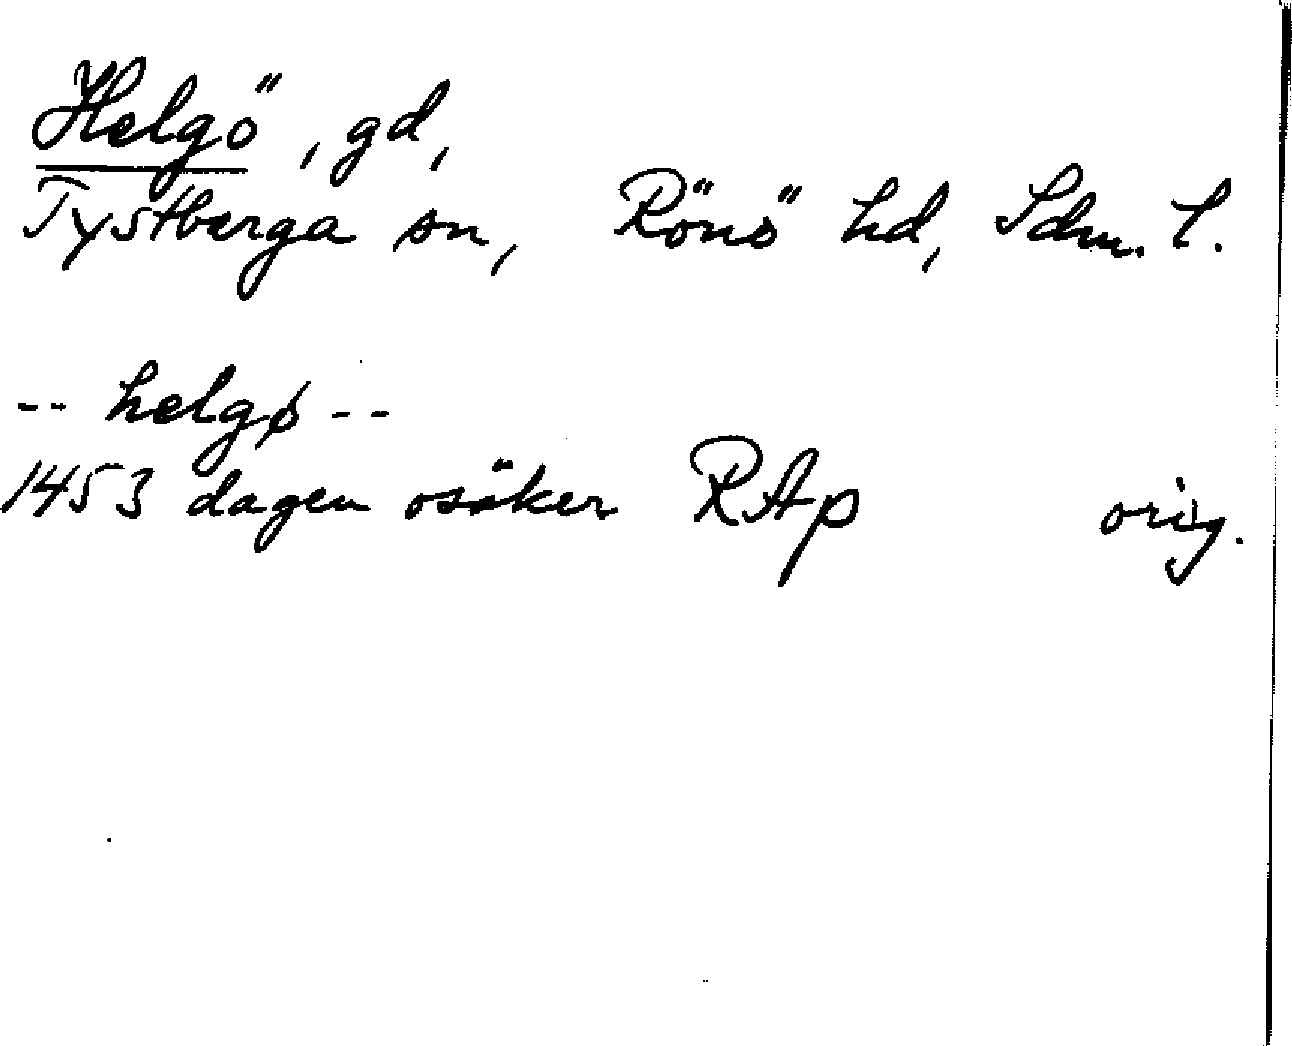 Helgö, gd,
Tystberga sn, Rönö hd, Sdm. l.
-- helgø --
1453 dagen osäker RAp orig.